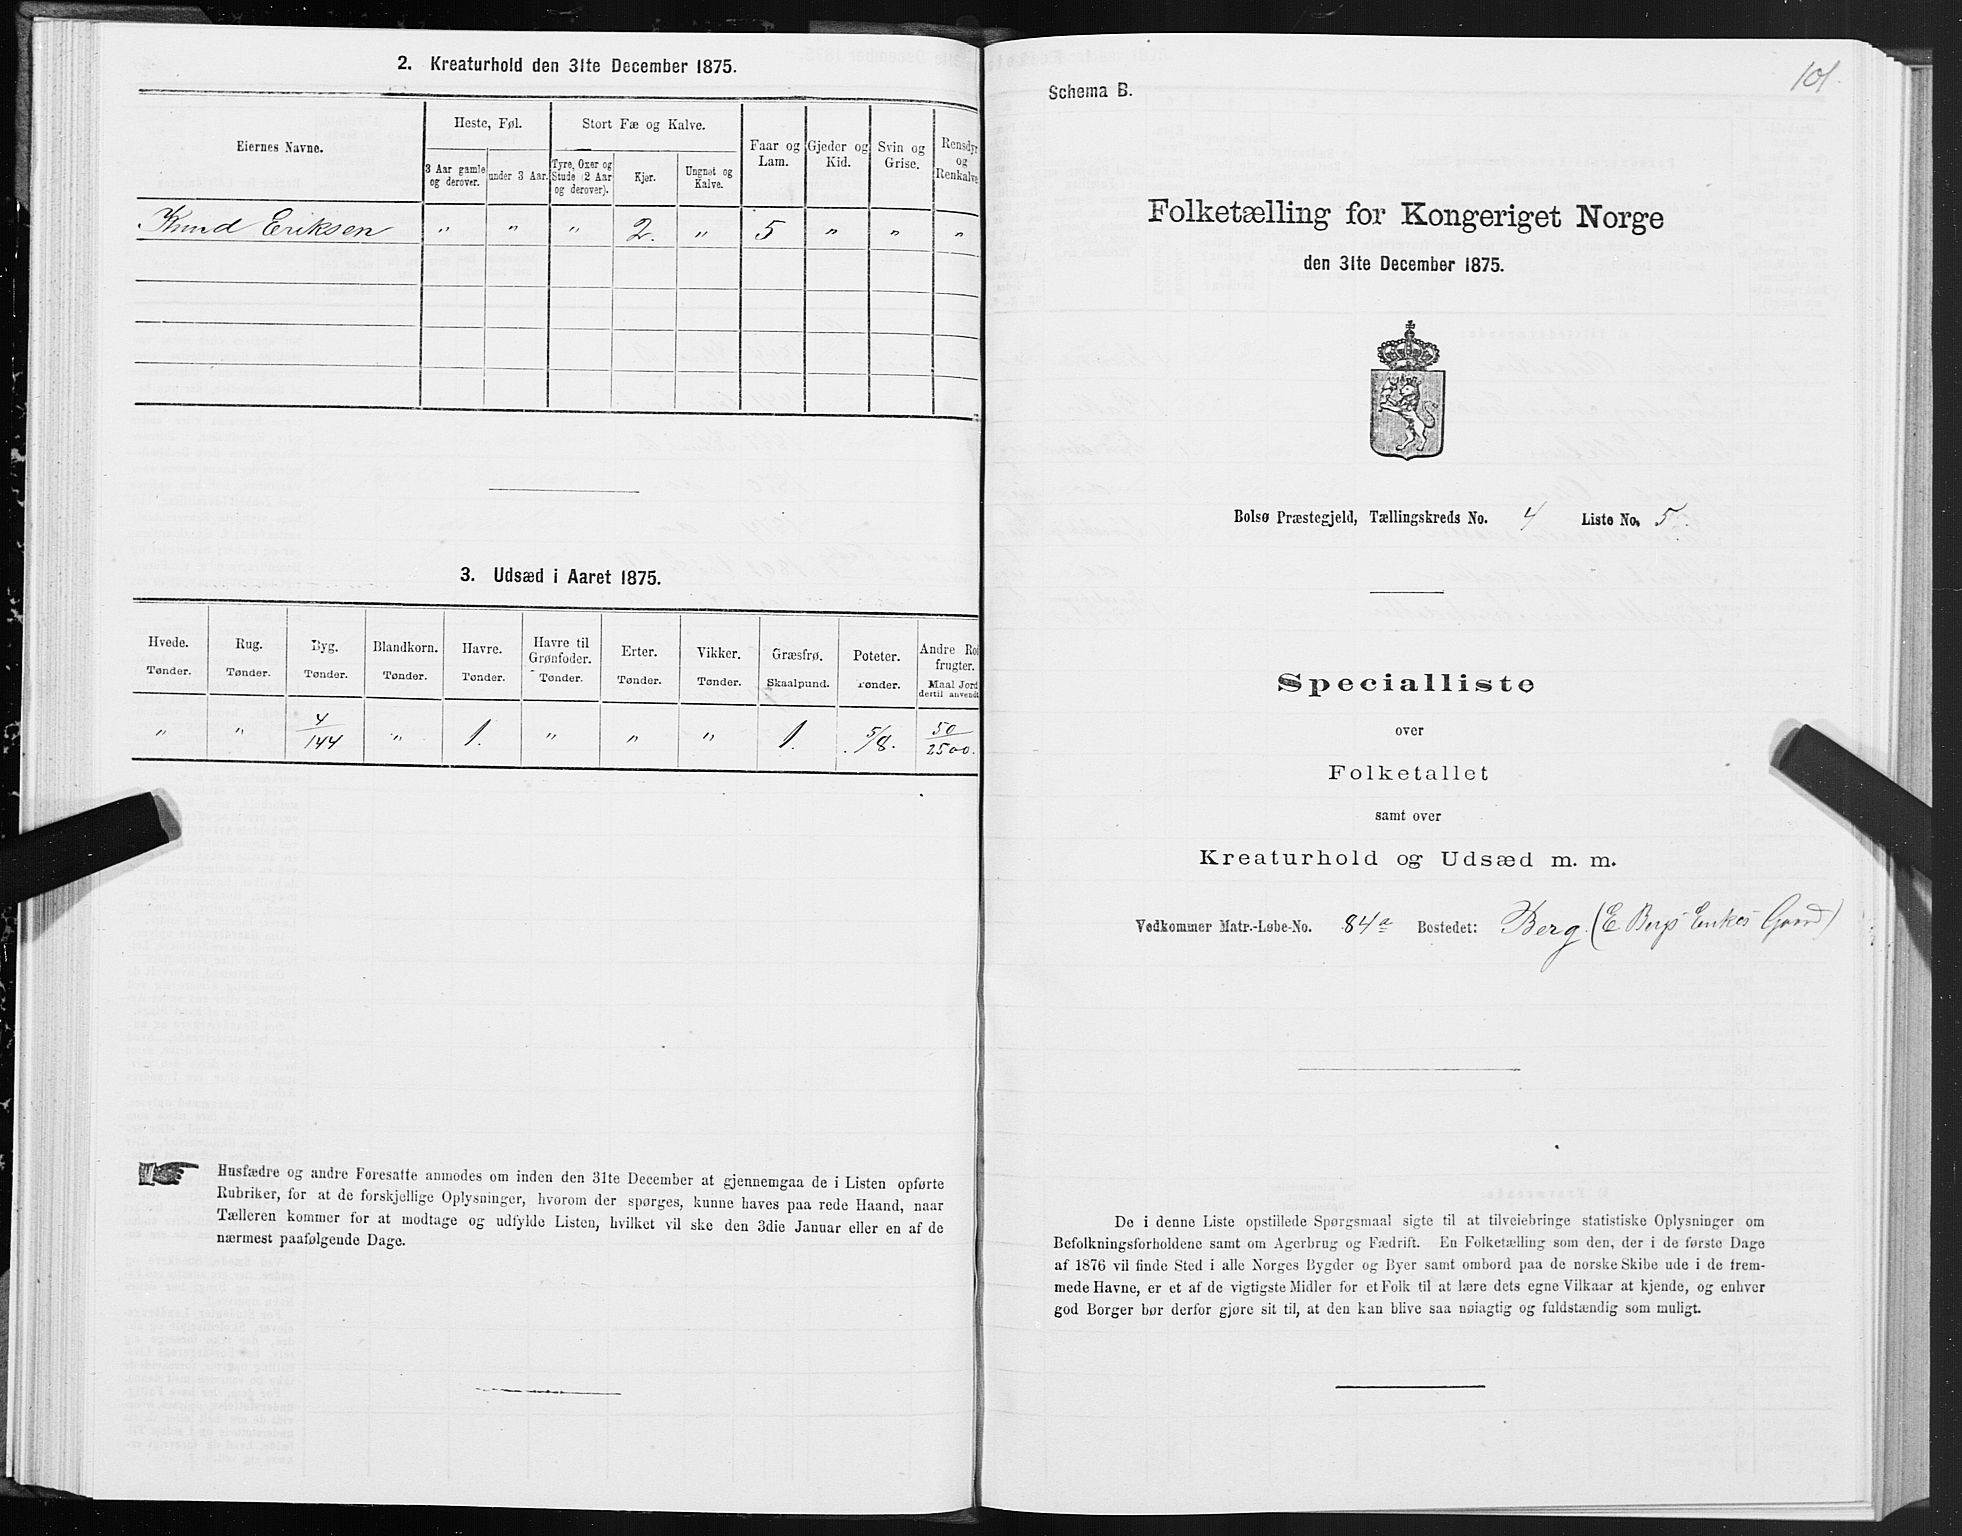 2. Kreaturhold den 31te December 1875.
Eiernes Navne.
Heste, Føl.
Stort Fæ og Kalve.
Faar og Lam.
Gjeder og Kid.
Svin og Grise.
Rensdyr og Renkalve
3 Aar gamle og derover.
under 3 Aar.
Tyre, Oxer og Stude (2 Aar og derover).
Kjør.
Ungnøt og Kalve.
Knud Eriksen " " " 2. " 5 " " "
3. Udsæd i Aaret 1875.
Hvede. Rug. Byg. Blandkorn. Havre. Havre til Grønfoder. Erter. Vikker. Græsfrø. Poteter. Andre Rodfrugter.
Tønder. Tønder. Tønder. Tønder. Tønder. Tønder. Tønder. Tønder. Skaalpund. Tønder. Maal Jord dertil anvendt
" " 4/144 " 1. " " " 1. 5/8. 50/2500.
Husfædre og andre Foresatte anmodes om inden den 31te December at gjennemgaa de i Listen opførte
Rubriker, for at de forskjellige Oplysninger, hvorom der spørges, kunne haves paa rede Haand, naar
Tælleren kommer for at modtage og udfylde Listen, hvilket vil ske den 3die Januar eller en af de
nærmest paafølgende Dage.
101.
Schema B.
Folketælling for Kongeriget Norge
den 31te December 1875.
Bolsø Præstegjeld, Tællingskreds No. 4 Liste No. 5.
Specialliste
over
Folketallet
samt over
Kreaturhold og Udsæd m. m.
Vedkommer Matr.-Løbe-No. 84a Bostedet: Berg. (E. Bergs Enkes Gaard)
De i denne Liste opstillede Spørgsmaal sigte til at tilveiebringe statistiske Oplysninger om
Befolkningsforholdene samt om Agerbrug og Fædrift. En Folketælling som den, der i de første Dage
af 1876 vil finde Sted i alle Norges Bygder og Byer samt ombord paa de norske Skibe ude i de frem-
mede Havne, er et af de vigtigste Midler for et Folk til at lære dets egne Vilkaar at kjende, og enhver
god Borger bør derfor gjøre sit til, at den kan blive saa nøiagtig og fuldstændig som muligt.